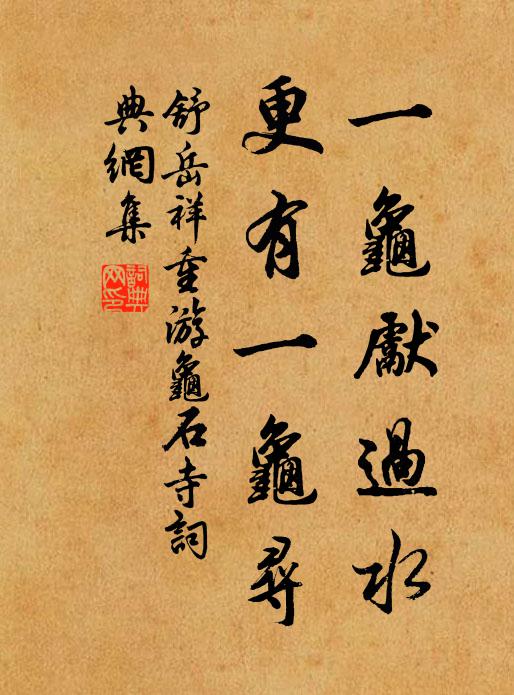 一龜獻過水
更有一龜尋
舒岳祥重游龜石寺詞
典網集
詞典網印